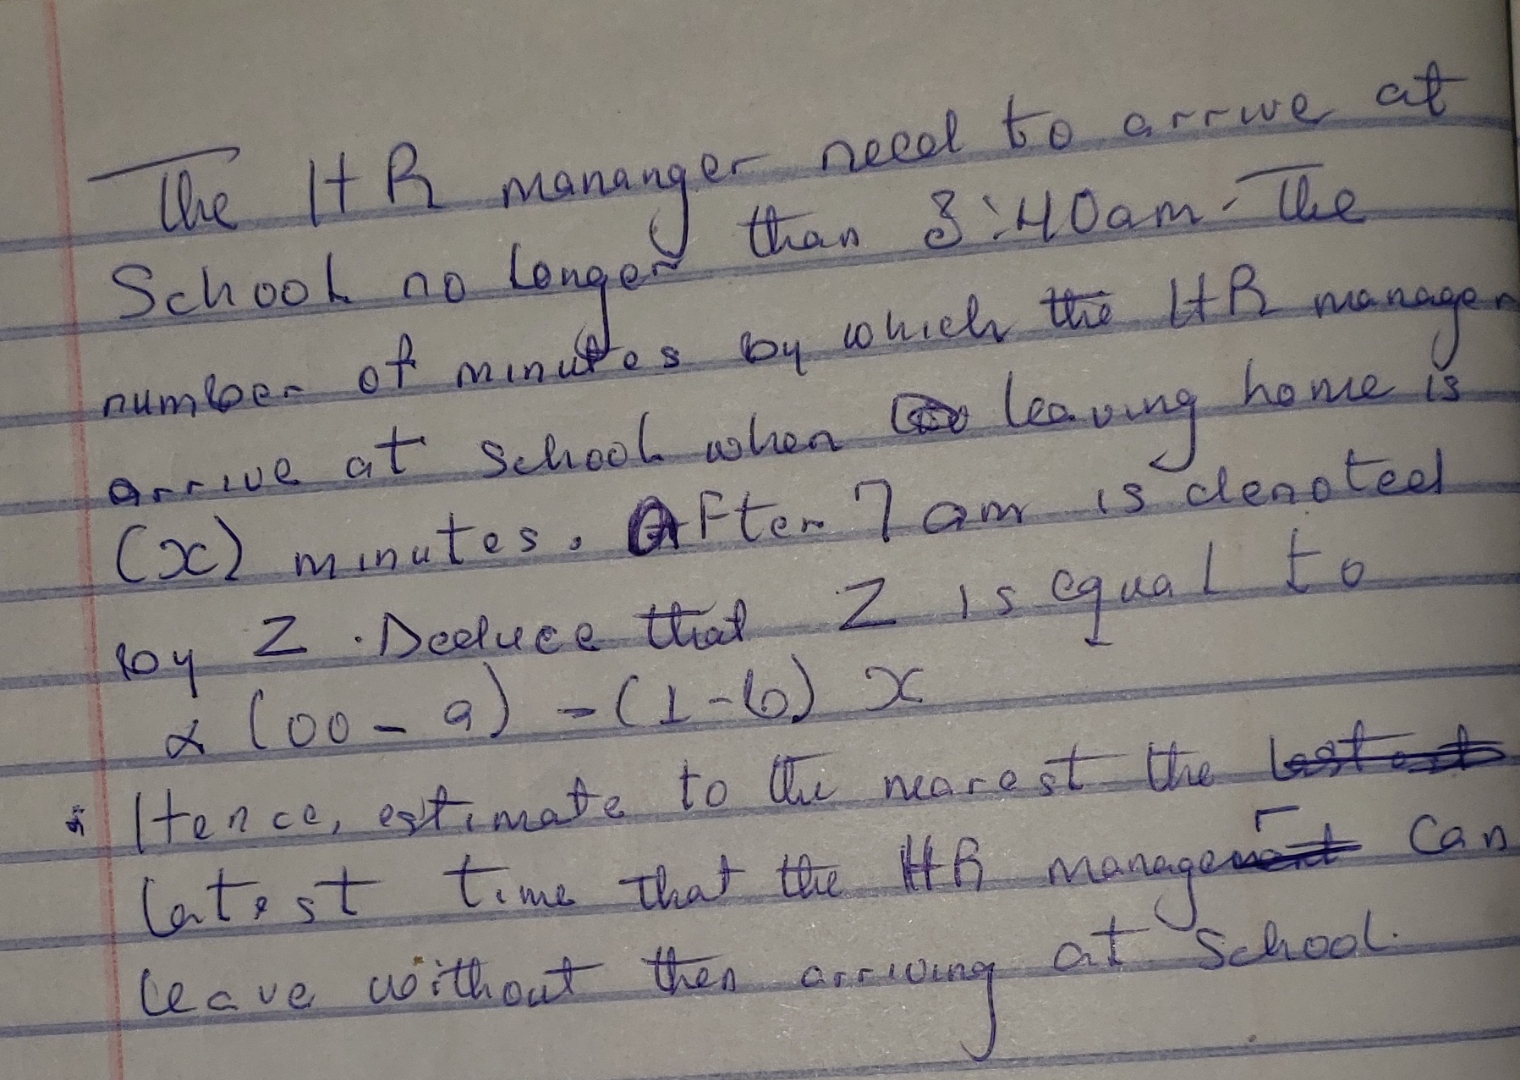 The HR mananger need to arrive at
School no longer than 8:40am. The
number of minutes by which the HR manager
arrive at school when leaving home is
(x) minutes. After 7 am is denoted
by Z. Deduce that Z is equal to
α (00 - a) - (1-b) x
Hence, estimate to the nearest the
latest time that the HR manager can
leave without then arriving at school.